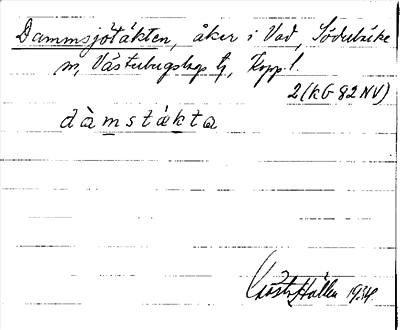 Dammsjötäkten, åker i Vad, Söderbärke
sn, Västerbergslags tg, Kopp. l.
2 (KG 82 NV)
dàmstäkta
Hallen 1934.